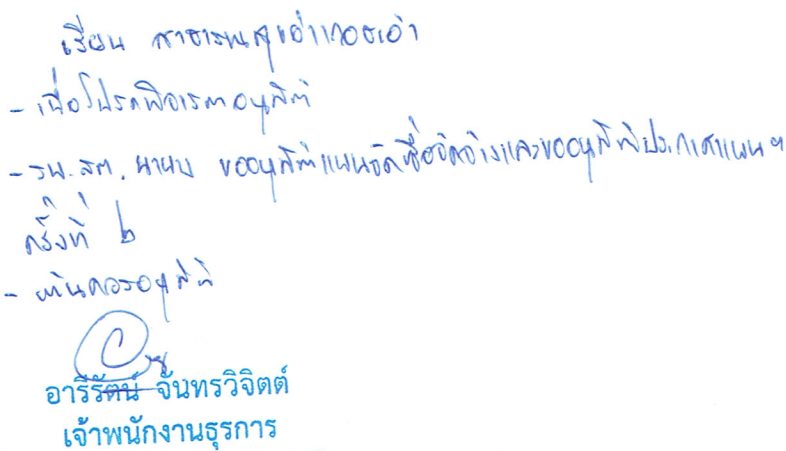 เรียน สาธารณสุขอำเภอ
- เพื่อโปรดพิจารณาอนุมัติ
- รพ.สต. นาบง ขออนุมัติแผนจัดซื้อจัดจ้างและขออนุมัติประกาศแผนฯ
ครั้งที่ ๒
- เห็นควรอนุมัติ
อารีรัตน์ จันทรวิจิตต์
เจ้าพนักงานธุรการ